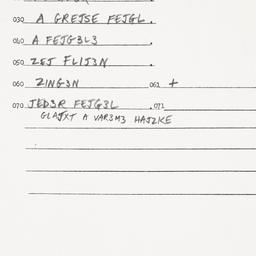 030 A GREJSE FEJGL.
040 A FEJG3L3.
050 ZEJ FLIJ3N.
060 ZING3N 061 +
070 JED3R FEJG3L.071
GLAJXT A VAR3M3 HAJZKE